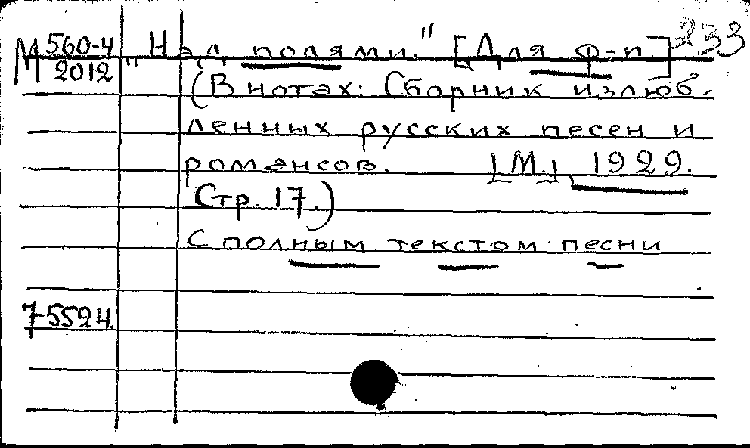 233
М 560-4 „Над полями." [Для ф-п]
2012 (В нотах: Сборник излюб-
ленных русских песен и
романсов. [М.], 1929.
Стр. 17.)
С полным текстом песни
7-5524